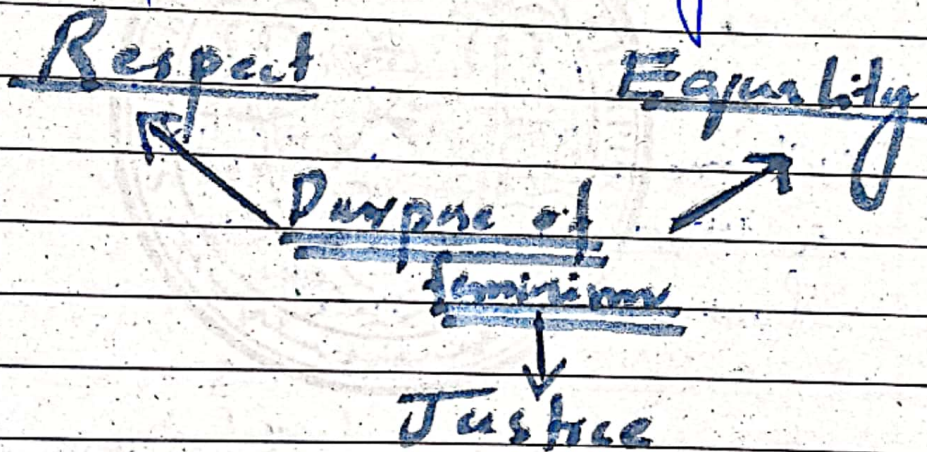 Respect Equality
Purpose of
feminism
Justice